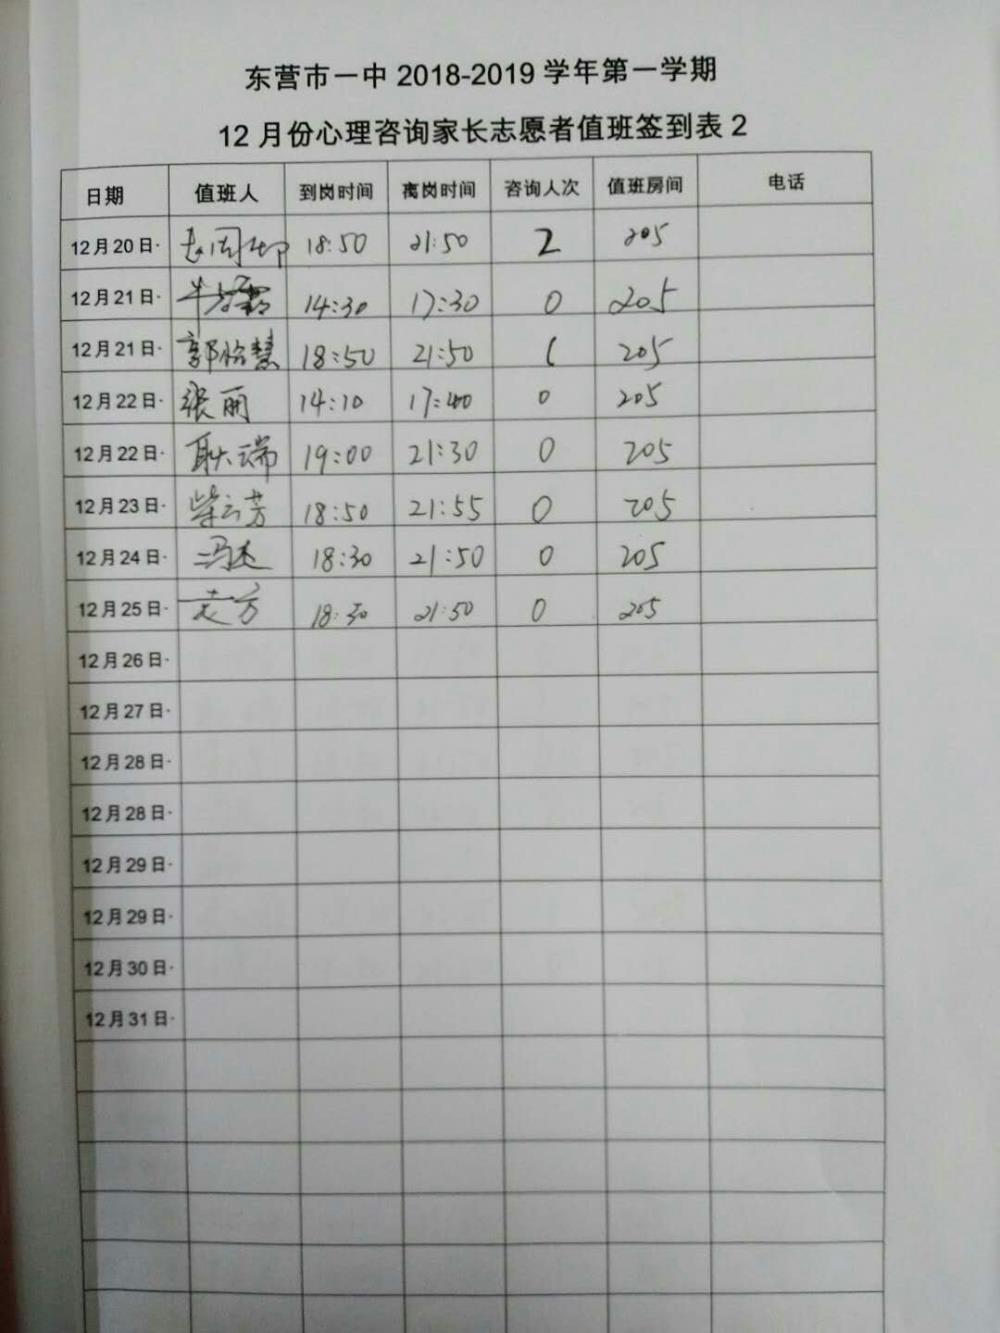 东营市一中 2018-2019 学年第一学期
12 月份心理咨询家长志愿者值班签到表 2
日期 值班人 到岗时间 离岗时间 咨询人次 值班房间 电话
12月20日· 18:50 21:50 2 205
12月21日· 14:30 17:30 0 205
12月21日· 郭怡慧 18:50 21:50 1 205
12月22日· 张丽 14:10 17:40 0 205
12月22日· 耿瑞 19:00 21:30 0 205
12月23日· 柴云芳 18:50 21:55 0 205
12月24日· 18:30 21:50 0 205
12月25日· 18:30 21:50 0 205
12月26日·
12月27日·
12月28日·
12月28日·
12月29日·
12月29日·
12月30日·
12月31日·